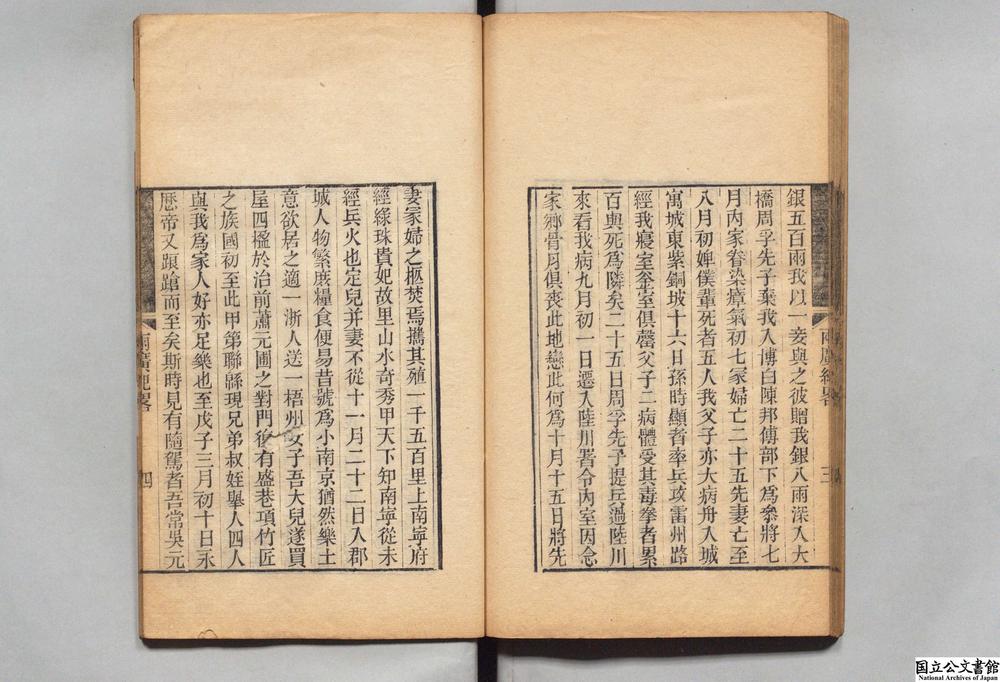 銀五百兩我以一妾與之彼贈我銀八兩深入大
橋周孚先子葉我入博白陳邦傅部下為叅將七
月內家眷染瘴氣初七冢婦亡二十五先妻亡至
八月初婢僕輩死者五人我父子亦大病舟入城
寓城東紫銅坡十六日孫時顯者率兵攻雷州路
經我寢室釜室俱罄父子二病體受其毒拳者累
百與死為隣矣二十五日周孚先子提兵過陸川
來看我病九月初一日遷入陸川署令內室因念
家鄉骨肉俱喪此地戀此何為十月十五日將先
兩廣紀畧
三
妻冢婦之柩焚焉攜其殖一千五百里上南寧府
經綠珠貴妃故里山水奇秀甲天下知南寧從未
經兵火也定兒并妻不從十一月二十二日入郡
城人物繁庶糧食便易昔號為小南京猶然樂土
意欲居之適一浙人送一梧州女子吾大兒遂買
屋四楹於治前蕭元圃之對門後有盛巷項竹匠
之族國初至此甲第聯緜現兄弟叔姪舉人四人
與我為家人好亦足樂也至戊子三月初十日永
歷帝又踉蹌而至矣斯時見有隨駕者吾常吳元
兩廣紀畧
四
国立公文書館
National Archives of Japan